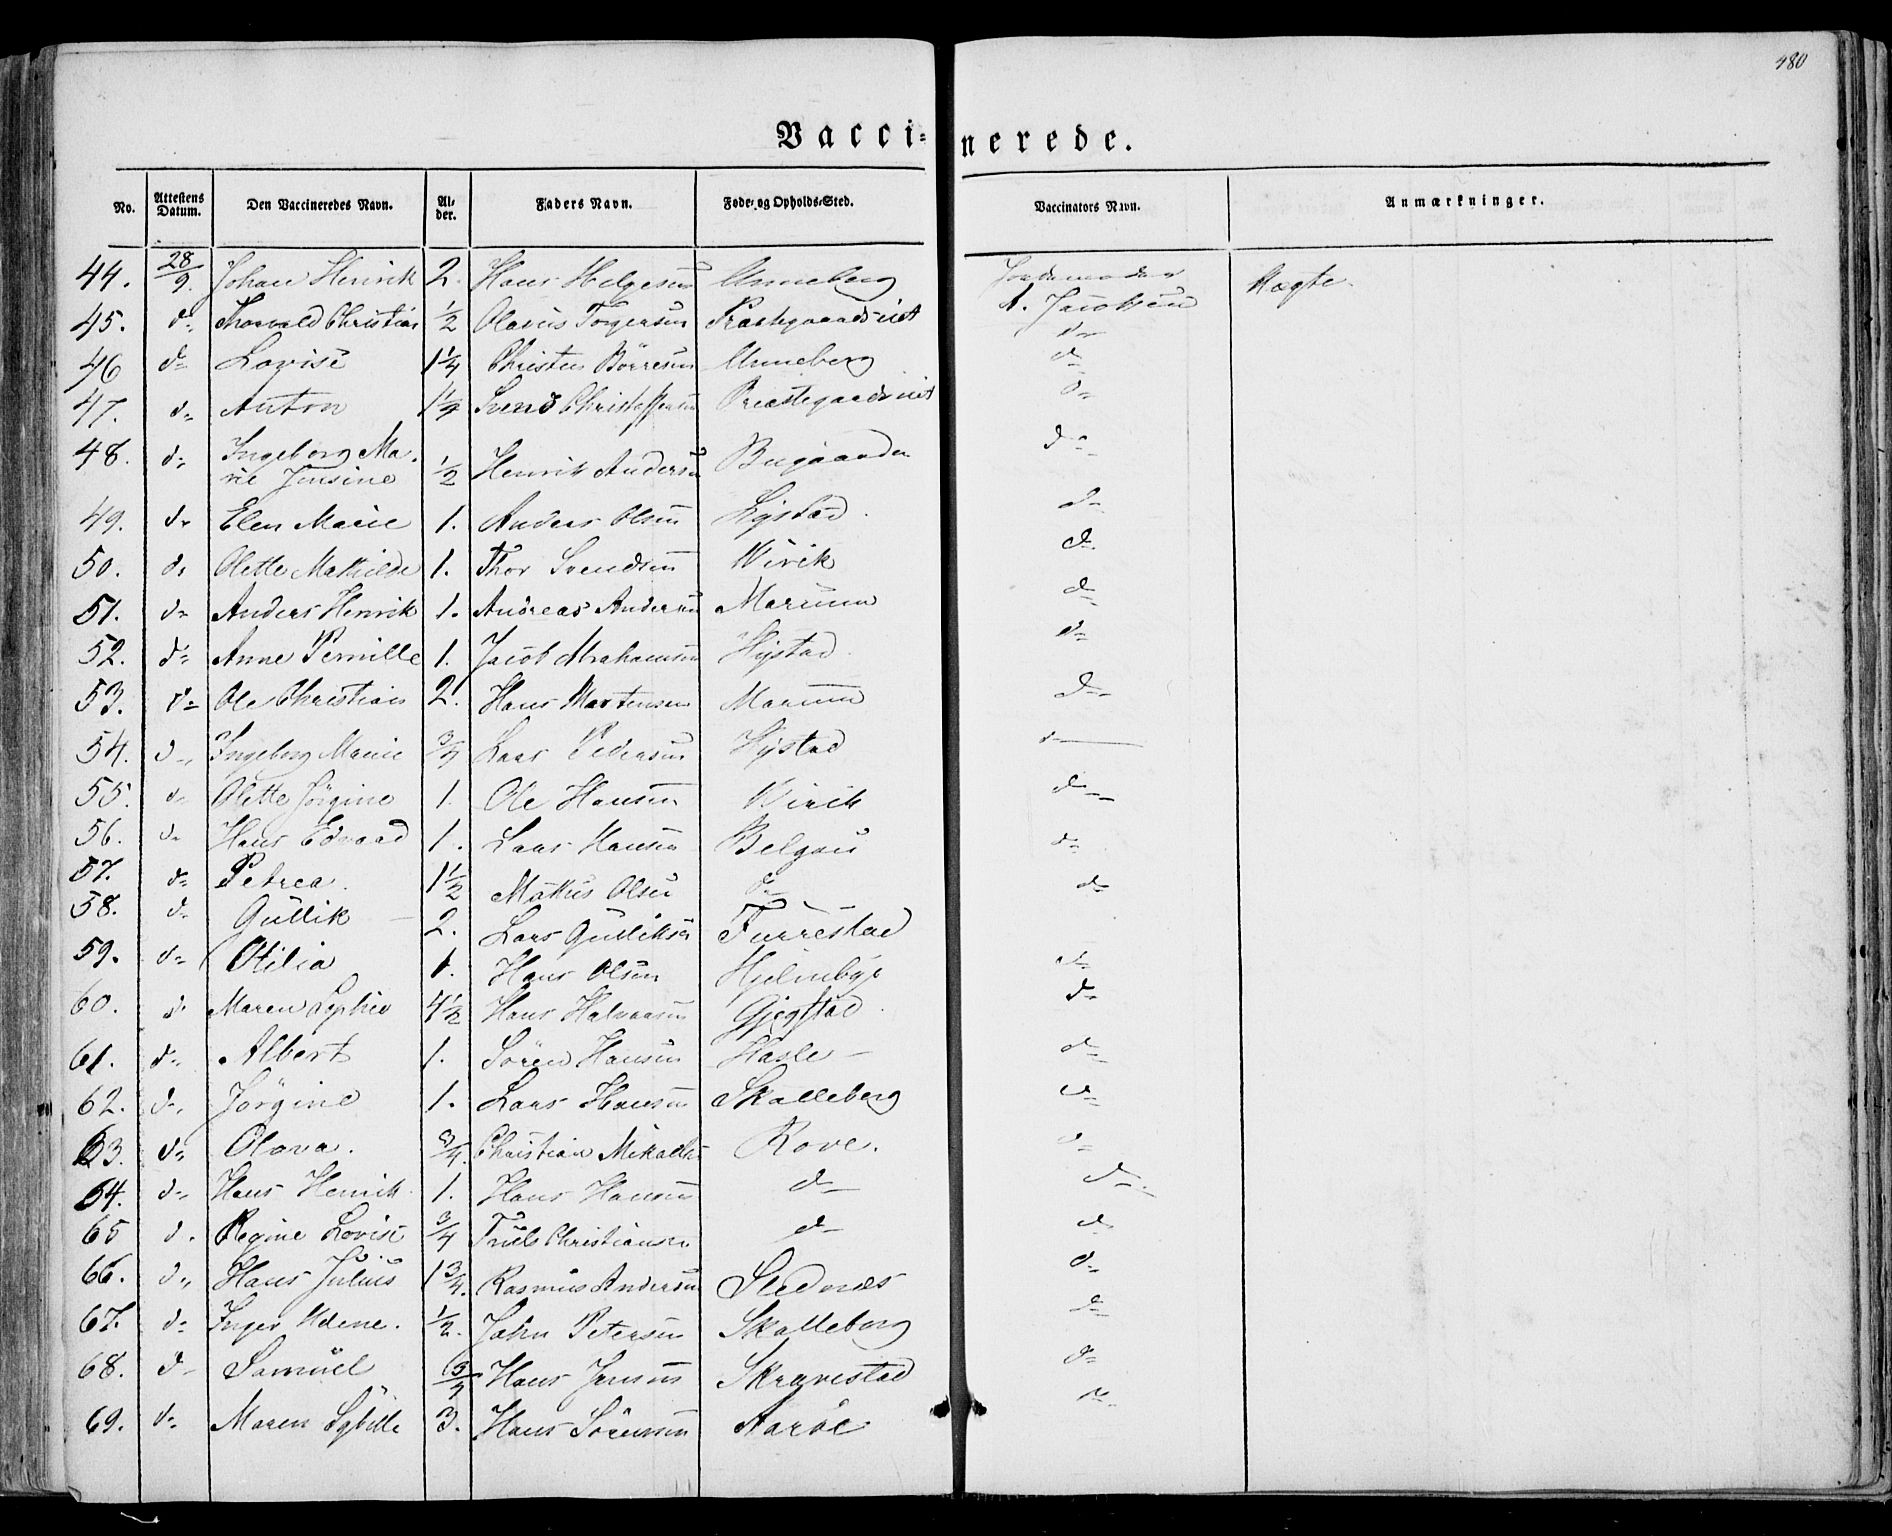 480
Vacci- nerede.
No. Attestens Datum. Den Vaccineredes Navn. Al- der. Faders Navn. Føde- og Opholds-Sted. Vaccinators Navn. Anmærkninger.
44. 28/9. Johan Henrik 2. Hans Helgesen Unneberg Jordemoder A. Jacobsen Ægte.
45. do Thorvald Christian 1/2 Olavus Torgersen Præstegaards do
46 do Lovise 1 1/4 Christen Börresen Unneberg do
47. do Anton 1 1/4 Svend Christoffersen Præstegaards do
48. do Ingeborg Ma- rie Jensine 1/2 Henrik Andersen Bugaarden do
49. do Elen Marie 1. Anders Olsen Lystad. do
50. do Olette Mathilde 1. Thor Svendsen Wirik do
51. do Anders Henrik 1. Andreas Andersen Marum do
52. do Anne Pernille 1. Jacob Abrahamsen Hystad. do
53. do Ole Christian 2. Hans Martensen Marum do
54. do Ingeborg Marie 3/4 Lars Pedersen Hystad do
55. do Olette Jörgine 1. Ole Hansen Wirik do
56. do Hans Edvard 1. Lars Hansen Belgau do
57. do Petrea. 1 1/2 Mattis Olsen do do
58. do Gullik 2. Lars Gulliksen Furrestad
59. do Otilia 1. Hans Olsen Hjelmbye do
60. do Maren Sophie 4 1/2 Hans Halvorsen Gjegstad. do
61. do Albert 1. Sören Hansen Hasle do
62. do Jörgine 1. Lars Hansen Skalleberg do
63. do Olava. 3/4. Christian Mikaels Rove. do
64. do Hans Henrik 1. Hans Hansen do do
65 do Regine Lovise 3/4 Truls Christiansen do do
66. do Hans Julius 1 3/4. Rasmus Andersen Stednes do
67. do Inger Helene. 1/2. John Petersen Skalleberg do
68. do Samuel 3/4 Hans Jensen Skravestad do
69. do Maren Sybille 3. Hans Sörensen Aaröe do